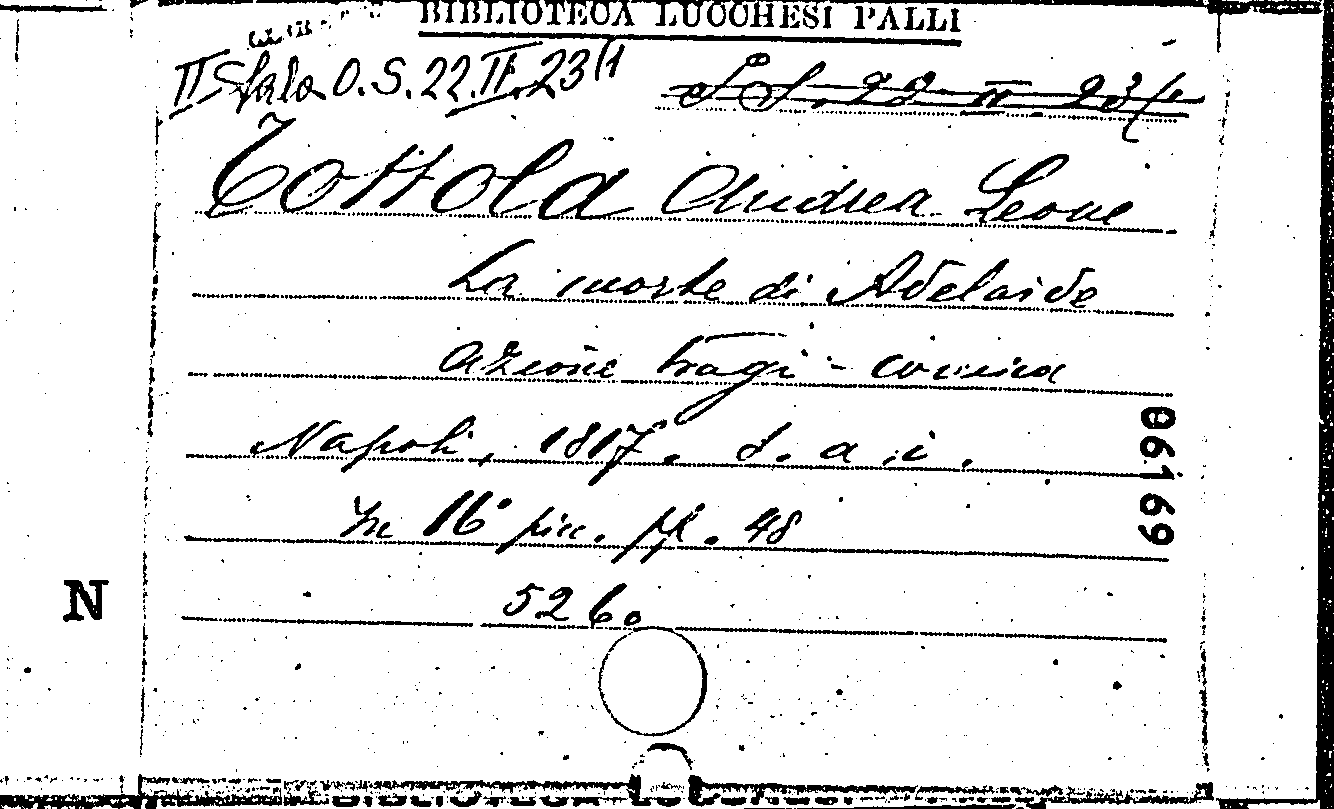 BIBLIOTECA LUCCHESI PALLI
II Sala O.S.22.II.23/1
S S. 22 II 23/1
Tottola Andrea Leone
La morte di Adelaide
azione tragi-comica
Napoli, 1817. s. a. i.
In 16° picc. pp. 48
5260
06169
N
BIBLIOTECA LUCCHESI